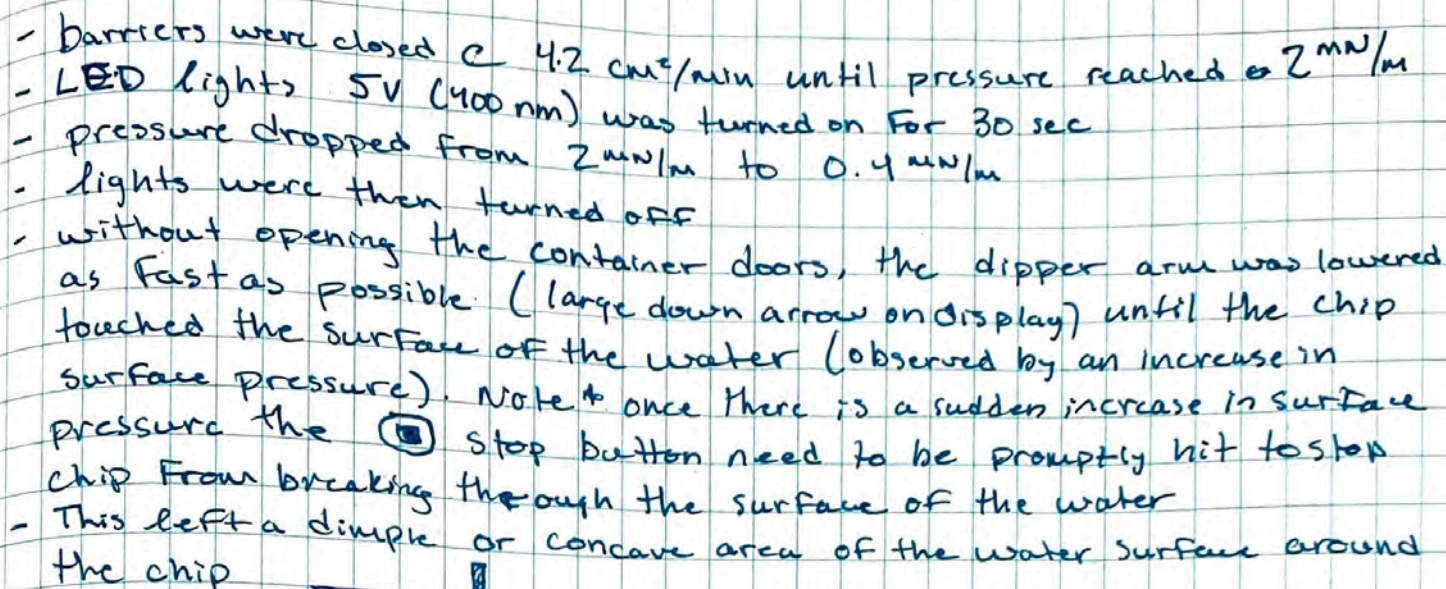 - barriers were closed @ 4.2 cm²/min until pressure reached 2 mN/m
- LED lights 5V (400 nm) was turned on for 30 sec
- pressure dropped from 2 mN/m to 0.4 mN/m
- lights were then turned off
- without opening the container doors, the dipper arm was lowered
as fast as possible (large down arrow on display) until the chip
touched the surface of the water (observed by an increase in
surface pressure). Note * once there is a sudden increase in surface
pressure the stop button need to be promptly hit to stop
chip from breaking through the surface of the water
- This left a dimple or concave area of the water surface around
the chip